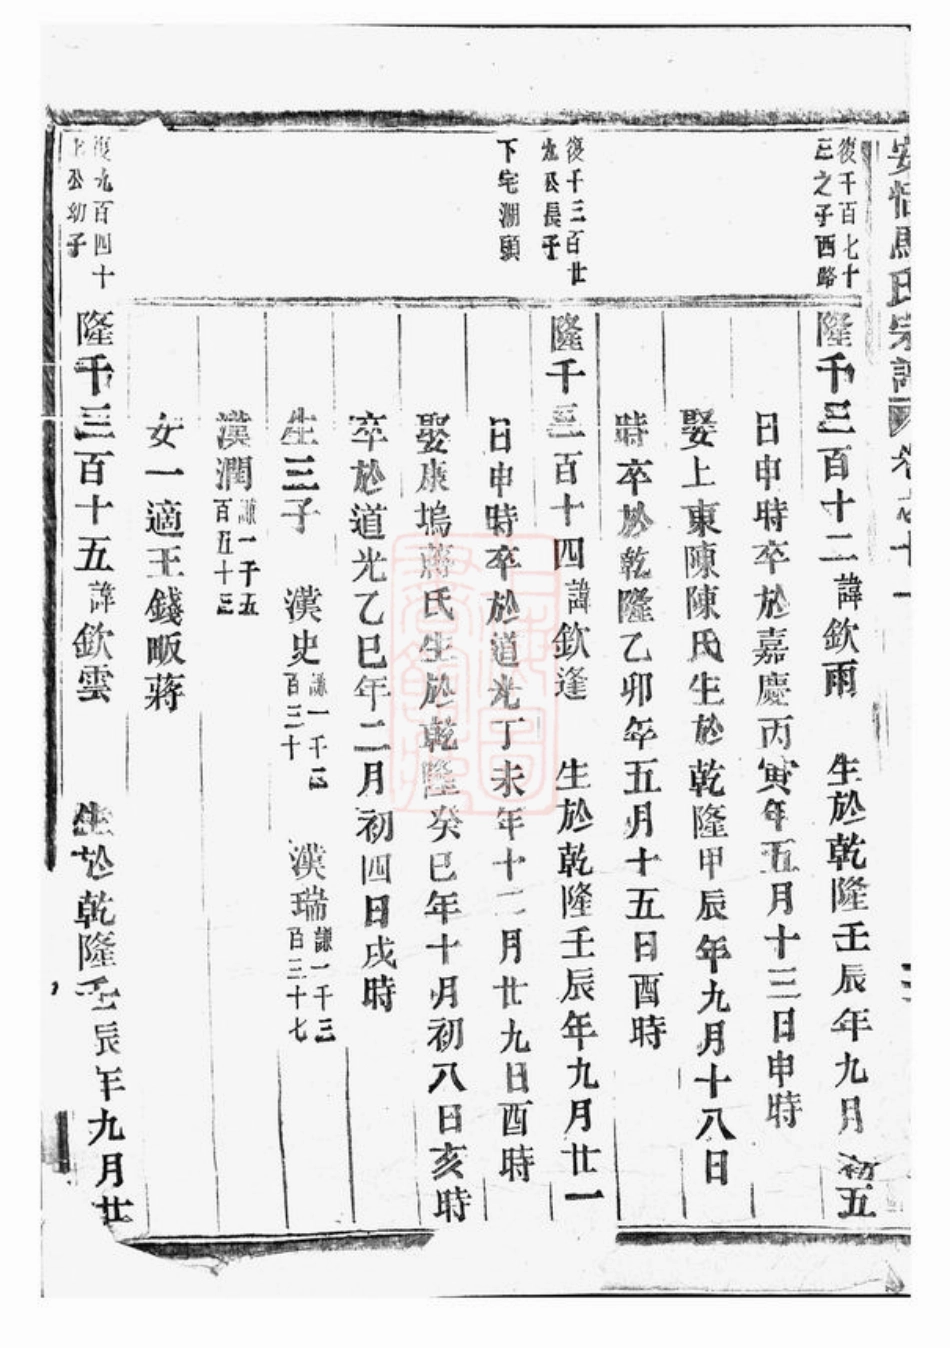 安恬馬氏宗譜 卷之十一
復千百七十
三之子西畧
隆千三百十二諱欽雨 生於乾隆壬辰年九月初五
日申時卒於嘉慶丙寅年五月十三日申時
娶上東陳陳氏生於乾隆甲辰年九月十八日
時卒於乾隆乙卯年五月十五日酉時
復千三百廿
九公長子
下宅湖頭
隆千三百十四諱欽逢 生於乾隆壬辰年九月廿一
日申時卒於道光丁未年十二月廿九日酉時
娶康塢蔣氏生於乾隆癸巳年十月初八日亥時
卒於道光乙巳年二月初四日戌時
生三子 漢史謙一千三百三十 漢瑞謙一千三百三十七
漢潤謙一千五百五十三
女一適王錢畈蔣
復九百四十
上公幼子
隆千三百十五諱欽雲 生於乾隆壬辰年九月廿